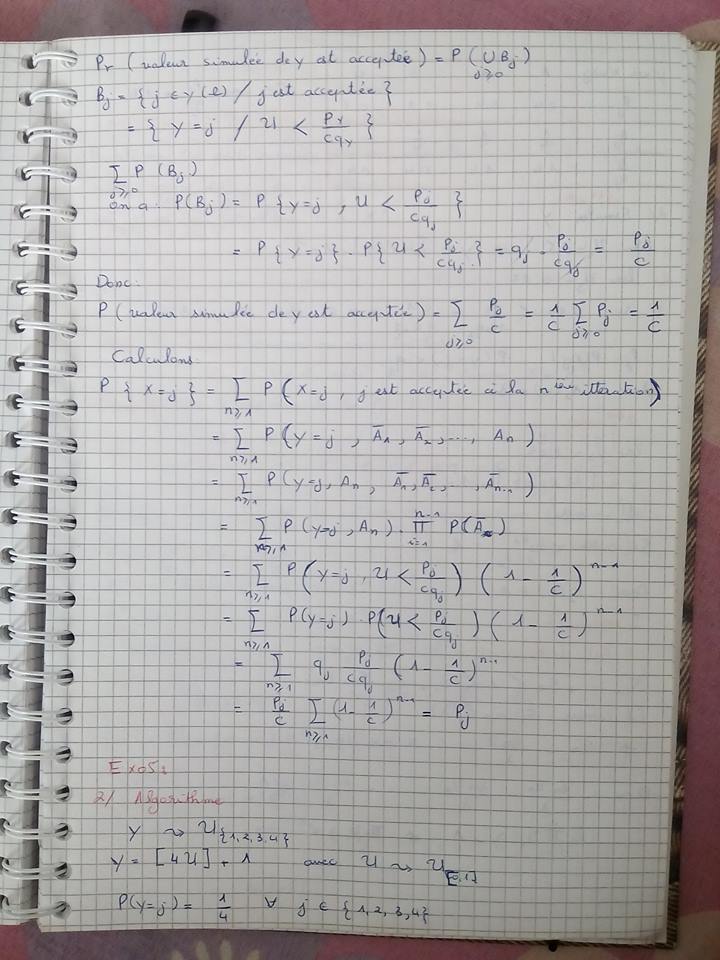 Pr (valeur simulée de y est acceptée) = P (∪ Bj)
j≥0
Bj = { j ∈ y(Ω) / j est acceptée }
= { Y = j / U < PY/cqY }
∑ P (Bj)
j≥0
on a. P(Bj) = P { y=j , U < Pj/cqj }
= P { Y=j } . P{ U < Pj/cqj } = qj . Pj/cqj = Pj/c
Donc:
P (valeur simulée de y est acceptée) = ∑j≥0 Pj/c = 1/c ∑j≥0 Pj = 1/c
Calculons
P { X=j } = ∑n≥1 P( X=j , j est acceptée à la nième itteration)
= ∑n≥1 P ( Y=j , Ā1 , Ā2 , ..., An )
= ∑n≥1 P (y=j, An , Ā1, Ā2, .. , Ān-1)
= ∑n≥1 P (y=j, An) . ∏i=1n-1 P(Ā)
= ∑n≥1 P ( Y=j , U < Pj/cqj ) ( 1 - 1/c )n-1
= ∑n≥1 P(y=j) . P( U < Pj/cqj ) ( 1 - 1/c )n-1
= ∑n≥1 qj Pj/cqj ( 1 - 1/c )n-1
= Pj/c ∑n≥1 (1 - 1/c)n-1 = Pj
Exo5:
2/ Algorithme
Y ↝ U{1,2,3,4}
Y = [4U] + 1 avec U ↝ U[0,1]
P(Y=j) = 1/4 ∀ j ∈ {1,2,3,4}